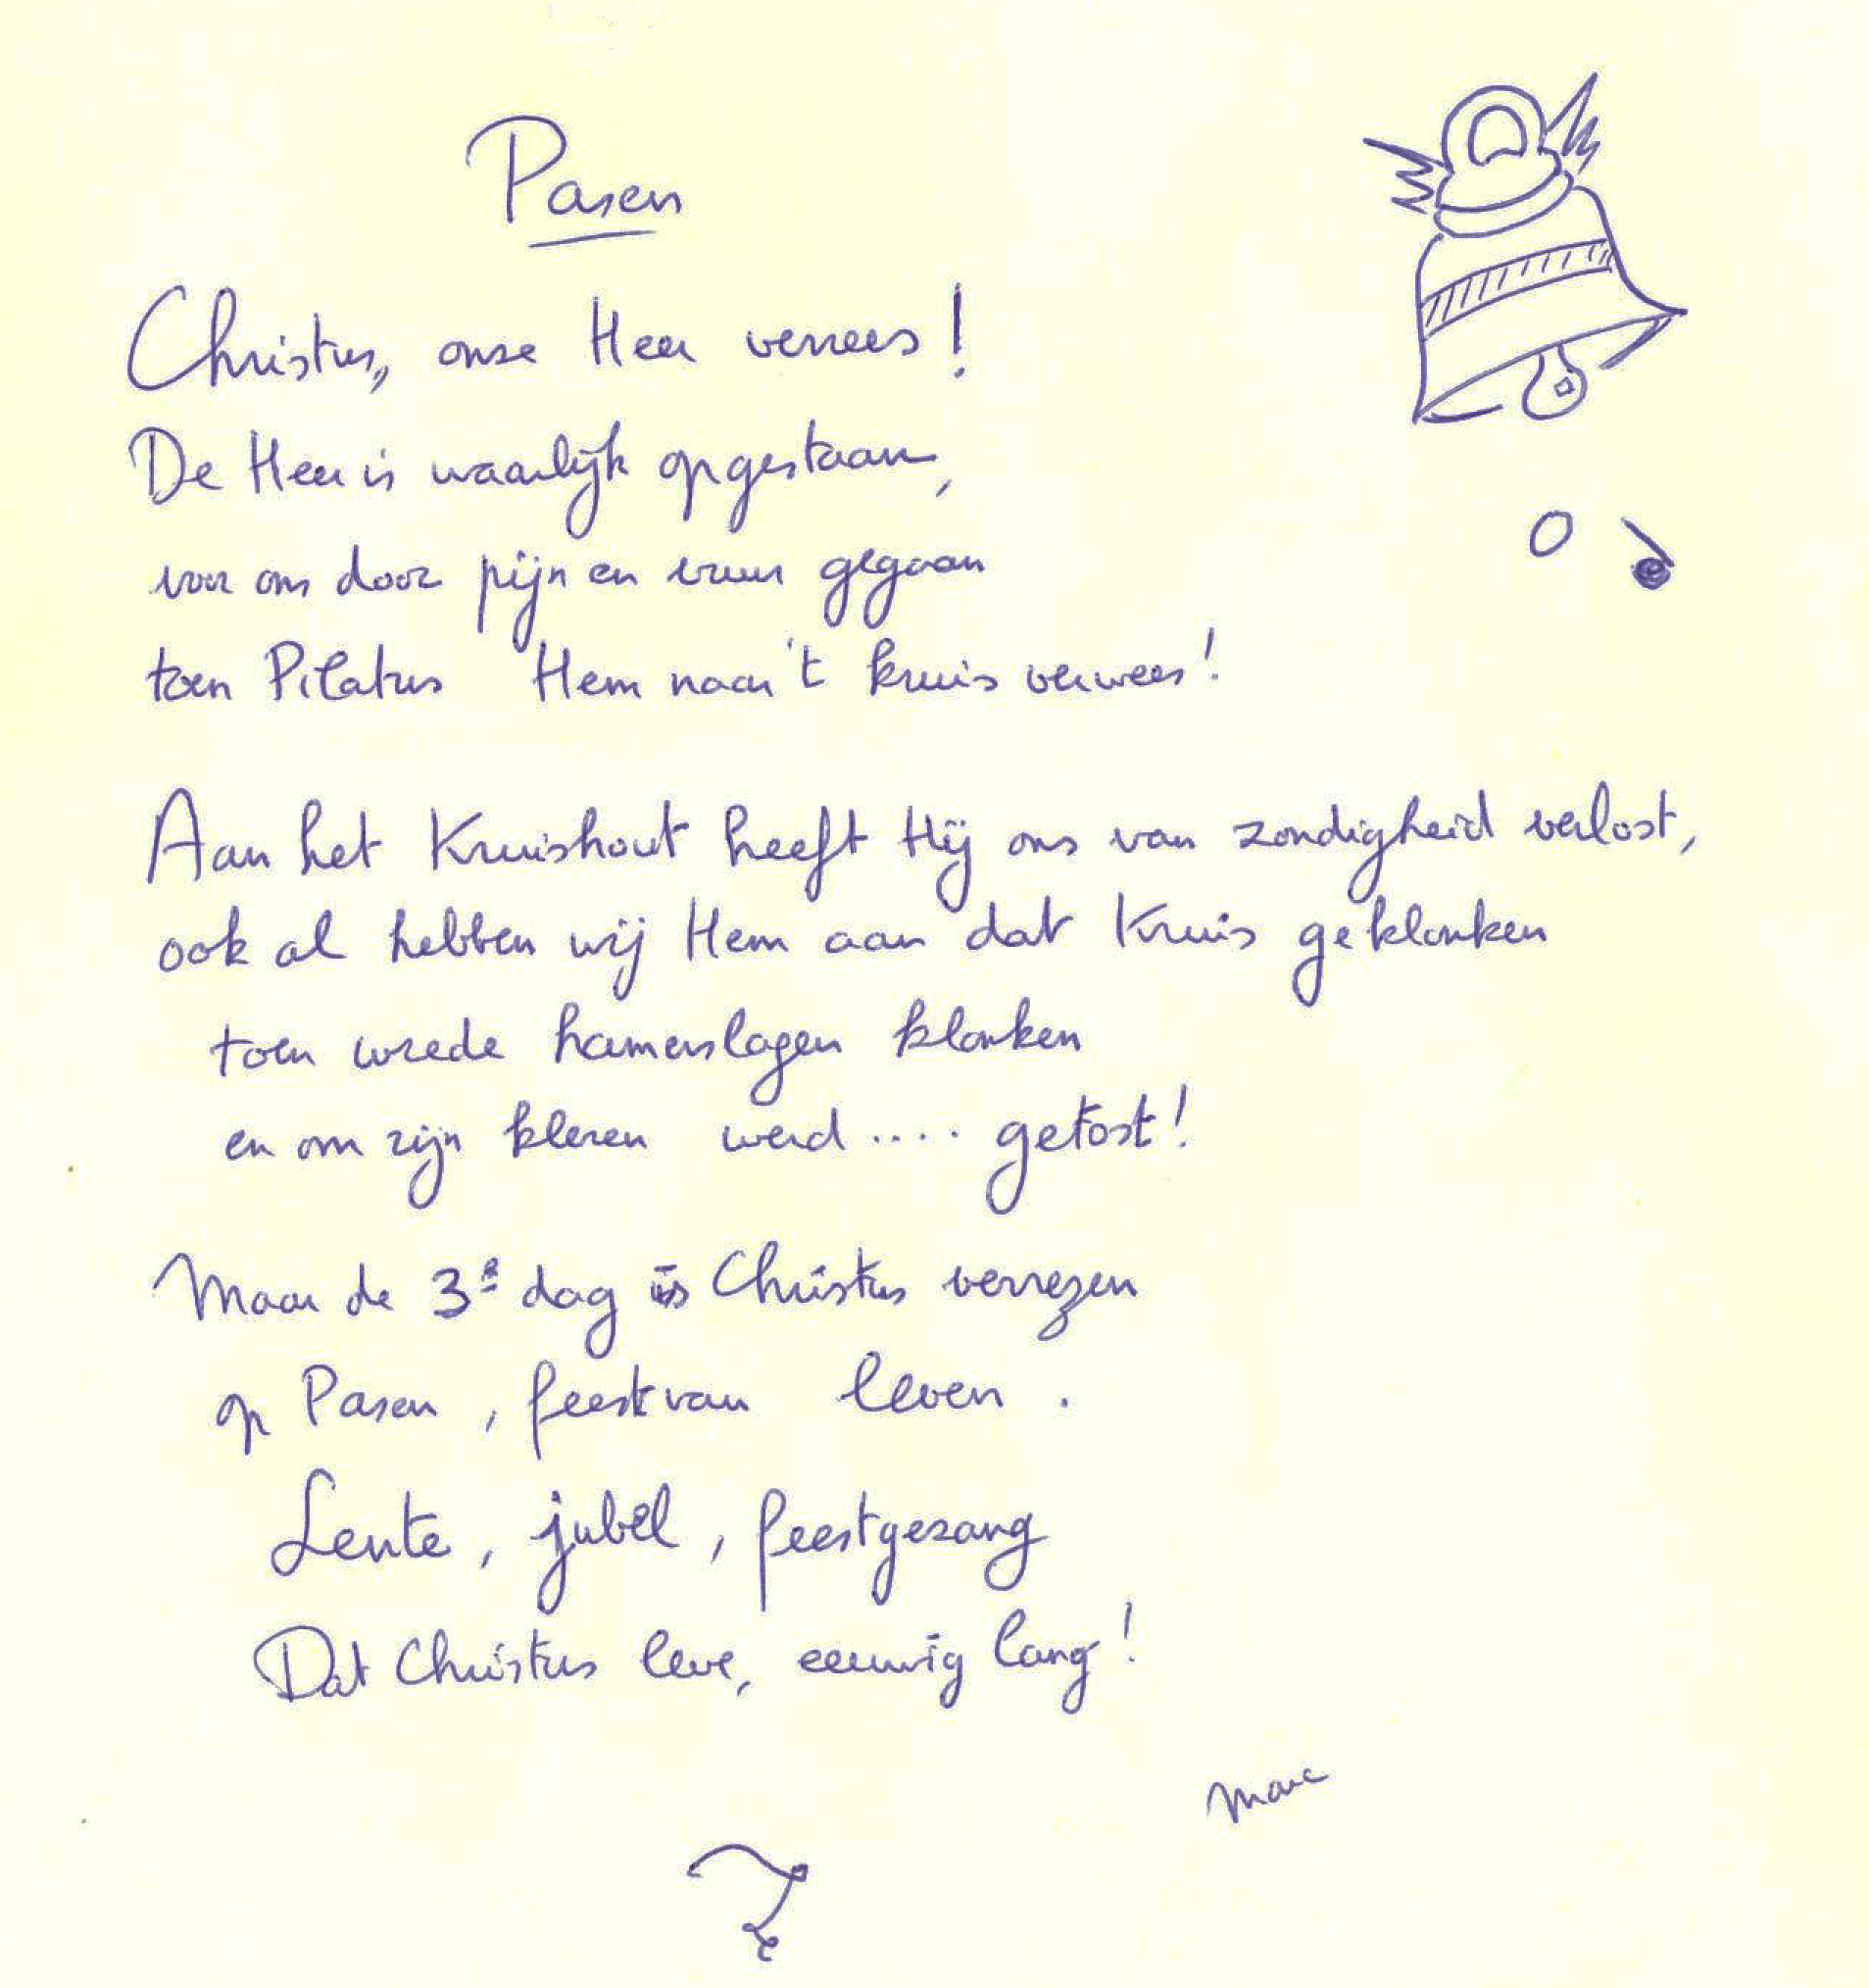 Pasen
Christus, onze Heer verrees!
De Heer is waarlijk opgestaan,
voor ons door pijn en vuur gegaan
toen Pilatus Hem naar 't kruis verwees!
Aan het Kruishout heeft Hij ons van zondigheid verlost,
ook al hebben wij Hem aan dat Kruis geklonken
toen wrede hamerslagen klonken
en om zijn kleren werd .... getost!
Maar de 3e dag is Christus verrezen
op Pasen, feest van leven.
Lente, jubel, feestgezang
Dat Christus leve, eeuwig lang!
Marc